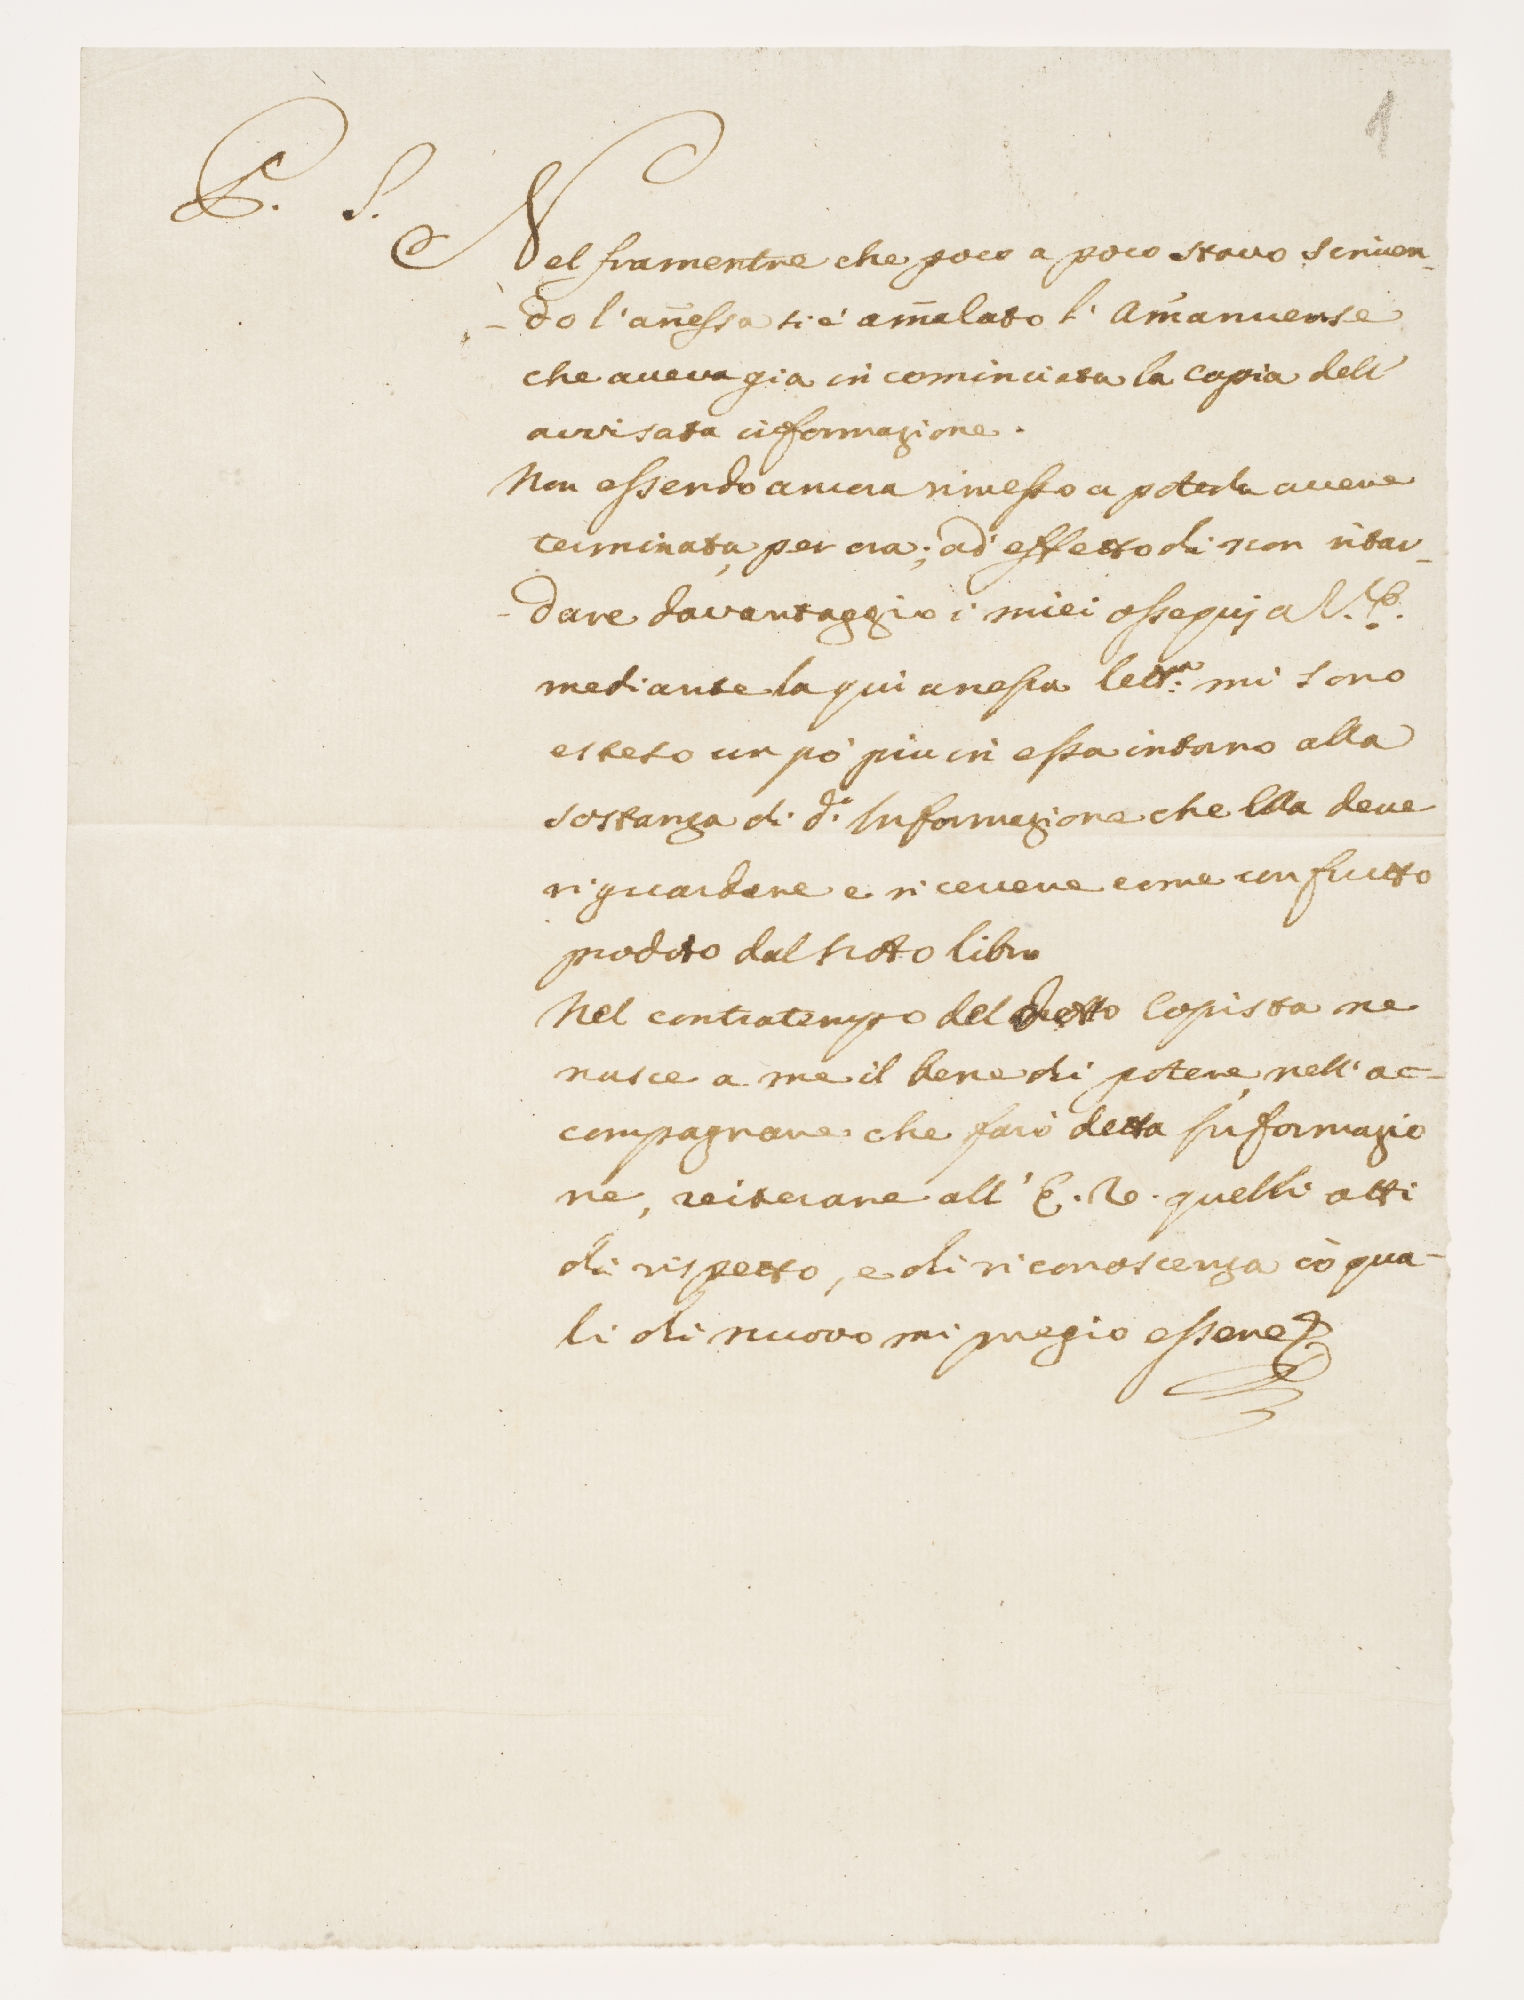 1
P. S. Nel framentre che poco a poco stavo scriven-
-do l'añessa si è am̃alato l'Am̃anuense
che aveva gia incominciata la copia dell'
avvisata informazione.
Non essendo ancora rimesso a poterla avere
terminata, per ora; ad effetto di non ritar-
-dare davantaggio i miei ossequj a V.
mediante la qui anessa lett.ra mi sono
esteso un pò piu in essa intorno alla
sostanza di d.a Informazione che Ella deve
riguardare e ricevere come un frutto
prodoto dal suo libro
Nel contratempo del detto Copista ne
nasce a me il bene di potere, nell'ac-
compagnare che farò detta Informazio
ne, reiterare all'E. V. quelli atti
di rispetto, e di riconoscenza cò qua-
li di nuovo mi pregio essere